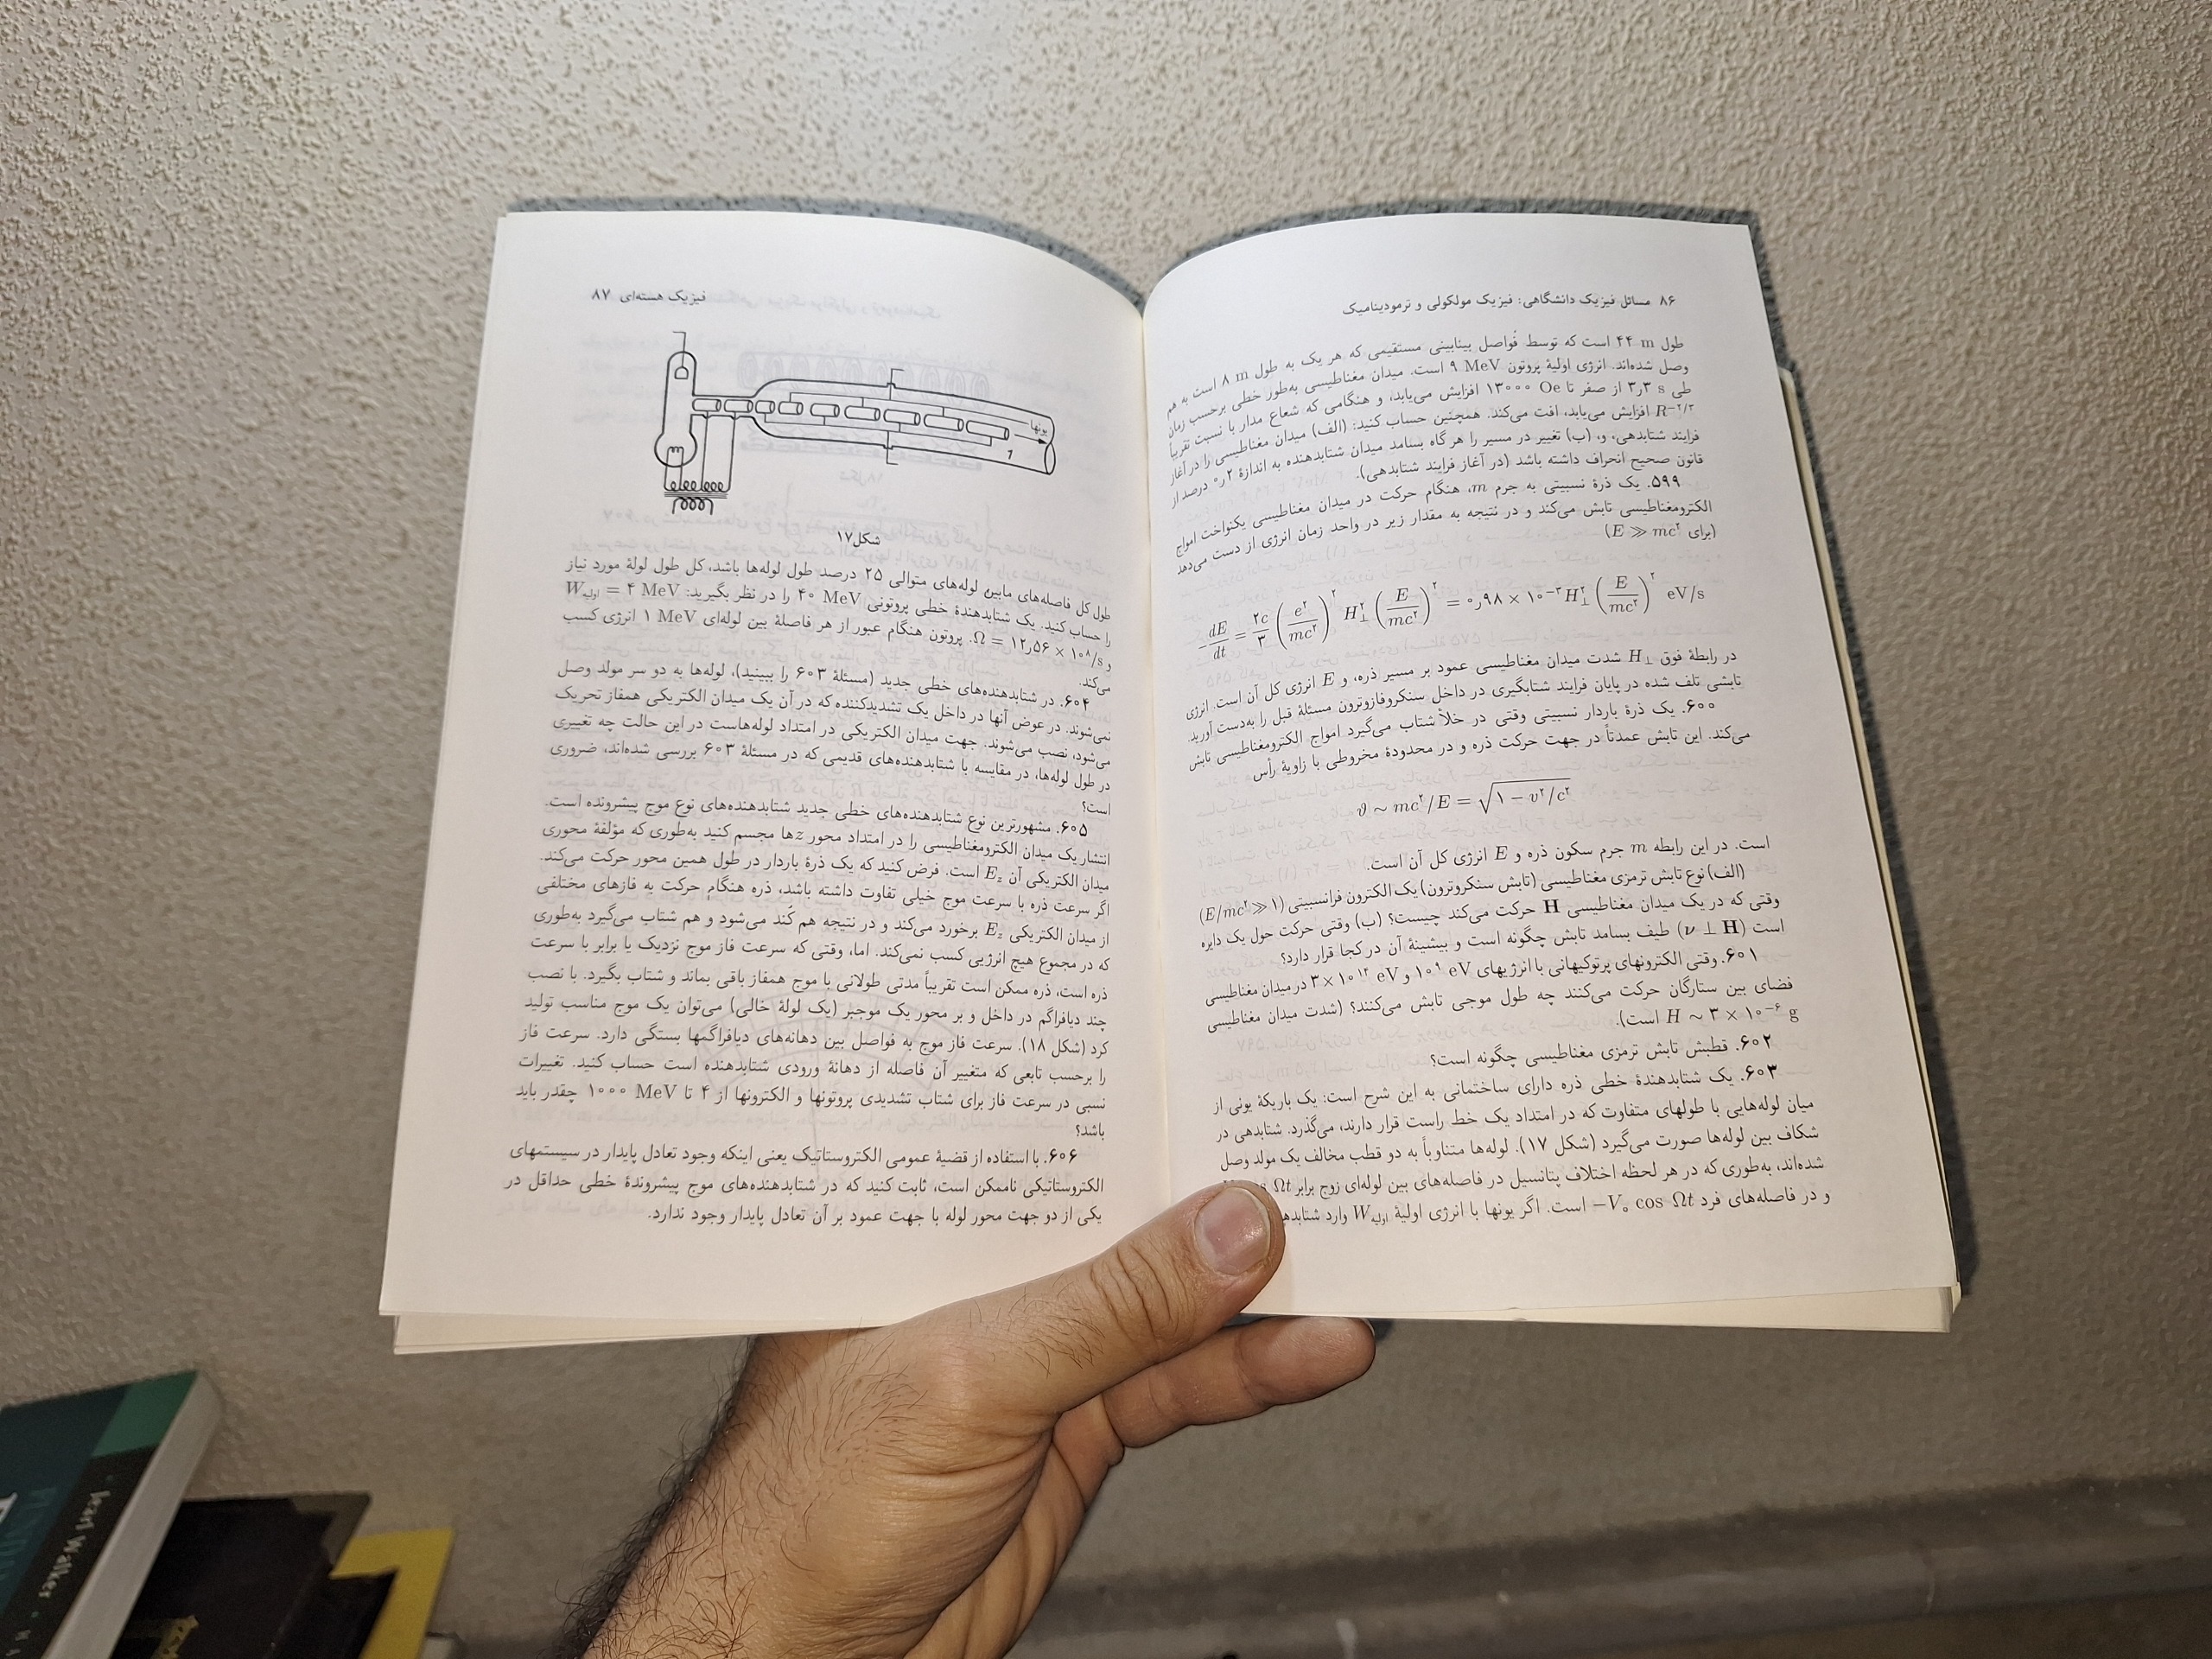 ۸۶ مسائل فیزیک دانشگاهی: فیزیک مولکولی و ترمودینامیک
طول ۴۴ m است که توسط فواصل بینابینی مستقیمی که هر یک به طول ۸ m است به هم
وصل شده‌اند. انرژی اولیهٔ پروتون ۹ MeV است. میدان مغناطیسی به‌طور خطی برحسب زمان
طی ۳٫۳ s از صفر تا ۱۳۰۰۰ Oe افزایش می‌یابد، و هنگامی که شعاع مدار با نسبت تقریباً
R^{-۲/۳} افزایش می‌یابد، افت می‌کند. همچنین حساب کنید: (الف) میدان مغناطیسی را در آغاز
فرایند شتابدهی، و، (ب) تغییر در مسیر را هر گاه بسامد میدان شتابدهنده به اندازهٔ ۰٫۲ درصد از
قانون صحیح انحراف داشته باشد (در آغاز فرایند شتابدهی).
۵۹۹. یک ذرهٔ نسبیتی به جرم m، هنگام حرکت در میدان مغناطیسی یکنواخت امواج
الکترومغناطیسی تابش می‌کند و در نتیجه به مقدار زیر در واحد زمان انرژی از دست می‌دهد
(برای E ≫ mc^۲)
-\frac{dE}{dt} = \frac{۲c}{۳} \left(\frac{e^۲}{mc^۲}\right)^۲ H_⊥^۲ \left(\frac{E}{mc^۲}\right)^۲ = ۰٫۹۸ × ۱۰^{-۳} H_⊥^۲ \left(\frac{E}{mc^۲}\right)^۲ eV/s
در رابطهٔ فوق H_⊥ شدت میدان مغناطیسی عمود بر مسیر ذره، و E انرژی کل آن است. انرژی
تابشی تلف شده در پایان فرایند شتابگیری در داخل سنکروفازوترون مسئلهٔ قبل را به‌دست آورید.
۶۰۰. یک ذرهٔ باردار نسبیتی وقتی در خلأ شتاب می‌گیرد امواج الکترومغناطیسی تابش
می‌کند. این تابش عمدتاً در جهت حرکت ذره و در محدودهٔ مخروطی با زاویهٔ رأس
ϑ ∼ mc^۲/E = \sqrt{۱ − v^۲/c^۲}
است. در این رابطه m جرم سکون ذره و E انرژی کل آن است.
(الف) نوع تابش ترمزی مغناطیسی (تابش سنکروترون) یک الکترون فرانسبیتی (E/mc^۲ ≫ ۱)
وقتی که در یک میدان مغناطیسی H حرکت می‌کند چیست؟ (ب) وقتی حرکت حول یک دایره
است (ν ⊥ H) طیف بسامد تابش چگونه است و بیشینهٔ آن در کجا قرار دارد؟
۶۰۱. وقتی الکترونهای پرتوکیهانی با انرژیهای ۱۰^۹ eV و ۳ × ۱۰^{۱۲} eV در میدان مغناطیسی
فضای بین ستارگان حرکت می‌کنند چه طول موجی تابش می‌کنند؟ (شدت میدان مغناطیسی
H ∼ ۳ × ۱۰^{-۶} g است).
۶۰۲. قطبش تابش ترمزی مغناطیسی چگونه است؟
۶۰۳. یک شتابدهندهٔ خطی ذره دارای ساختمانی به این شرح است: یک باریکهٔ یونی از
میان لوله‌هایی با طولهای متفاوت که در امتداد یک خط راست قرار دارند، می‌گذرد. شتابدهی در
شکاف بین لوله‌ها صورت می‌گیرد (شکل ۱۷). لوله‌ها متناوباً به دو قطب مخالف یک مولد وصل
شده‌اند، به‌طوری که در هر لحظه اختلاف پتانسیل در فاصله‌های بین لوله‌ای زوج برابر Ωt
و در فاصله‌های فرد −V_۰ cos Ωt است. اگر یونها با انرژی اولیهٔ W_{اولیه} وارد
فیزیک هسته‌ای ۸۷
یونها
شکل ۱۷
طول کل فاصله‌های مابین لوله‌های متوالی ۲۵ درصد طول لوله‌ها باشد، کل طول لولهٔ مورد نیاز
را حساب کنید. یک شتابدهندهٔ خطی پروتونی ۴۰ MeV را در نظر بگیرید: W_{اولیه} = ۴ MeV
و Ω = ۱۲٫۵۶ × ۱۰^۸/s. پروتون هنگام عبور از هر فاصلهٔ بین لوله‌ای ۱ MeV انرژی کسب
می‌کند.
۶۰۴. در شتابدهنده‌های خطی جدید (مسئلهٔ ۶۰۳ را ببینید)، لوله‌ها به دو سر مولد وصل
نمی‌شوند. در عوض آنها در داخل یک تشدیدکننده که در آن یک میدان الکتریکی همفاز تحریک
می‌شود، نصب می‌شوند. جهت میدان الکتریکی در امتداد لوله‌هاست در این حالت چه تغییری
در طول لوله‌ها، در مقایسه با شتابدهنده‌های قدیمی که در مسئلهٔ ۶۰۳ بررسی شده‌اند، ضروری
است؟
۶۰۵. مشهورترین نوع شتابدهنده‌های خطی جدید شتابدهنده‌های نوع موج پیشرونده است.
انتشار یک میدان الکترومغناطیسی را در امتداد محور zها مجسم کنید به‌طوری که مؤلفهٔ محوری
میدان الکتریکی آن E_z است. فرض کنید که یک ذرهٔ باردار در طول همین محور حرکت می‌کند.
اگر سرعت ذره با سرعت موج خیلی تفاوت داشته باشد، ذره هنگام حرکت به فازهای مختلفی
از میدان الکتریکی E_z برخورد می‌کند و در نتیجه هم کُند می‌شود و هم شتاب می‌گیرد به‌طوری
که در مجموع هیچ انرژیی کسب نمی‌کند. اما، وقتی که سرعت فاز موج نزدیک یا برابر با سرعت
ذره است، ذره ممکن است تقریباً مدتی طولانی با موج همفاز باقی بماند و شتاب بگیرد. با نصب
چند دیافراگم در داخل و بر محور یک موجبر (یک لولهٔ خالی) می‌توان یک موج مناسب تولید
کرد (شکل ۱۸). سرعت فاز موج به فواصل بین دهانه‌های دیافراگمها بستگی دارد. سرعت فاز
را برحسب تابعی که متغیر آن فاصله از دهانهٔ ورودی شتابدهنده است حساب کنید. تغییرات
نسبی در سرعت فاز برای شتاب تشدیدی پروتونها و الکترونها از ۴ تا ۱۰۰۰ MeV چقدر باید
باشد؟
۶۰۶. با استفاده از قضیهٔ عمومی الکتروستاتیک یعنی اینکه وجود تعادل پایدار در سیستمهای
الکتروستاتیکی ناممکن است، ثابت کنید که در شتابدهنده‌های موج پیشروندهٔ خطی حداقل در
یکی از دو جهت محور لوله با جهت عمود بر آن تعادل پایدار وجود ندارد.
Jearl Walker